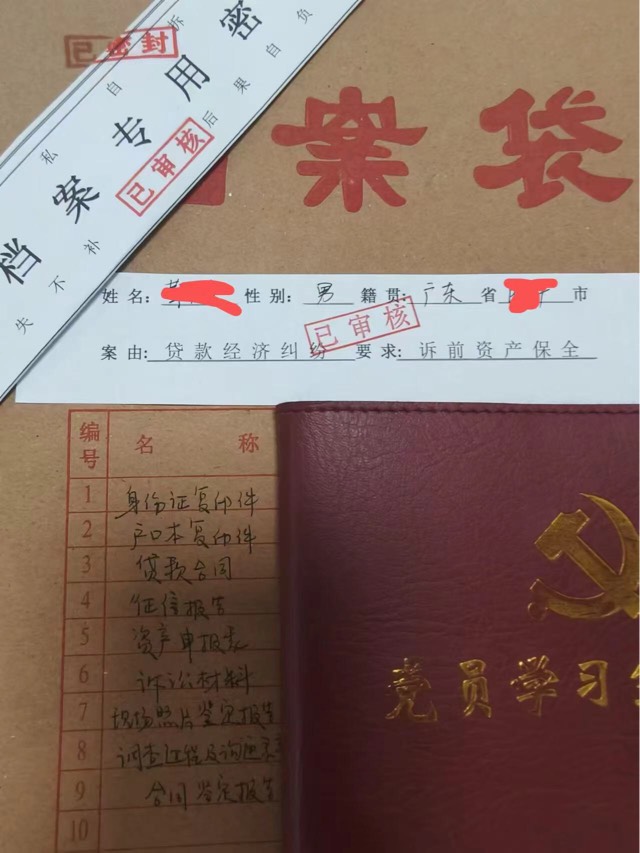 已密封
档案专用密
私自拆
失不补 后果自负
已审核
案袋
姓名: 性别: 男 籍贯: 广东 省 市
已审核
案由: 贷款经济纠纷 要求: 诉前资产保全
编号 名称
1 身份证复印件
2 户口本复印件
3 贷款合同
4 征信报告
5 资产申报表
6 诉讼材料
7 现场照片鉴定报告
8 调查过程及询问
9 合同鉴定报告
10
党员学习